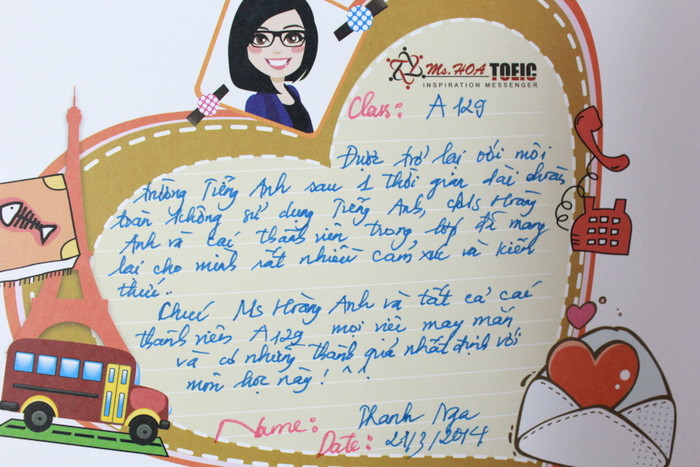 Ms. HOA TOEIC
INSPIRATION MESSENGER
Class: A 129
Được trở lại với môi
trường Tiếng Anh sau 1 thời gian dài
toàn không sử dụng Tiếng Anh, Ms Hoàng
Anh và các thành viên trong lớp đã mang
lại cho mình rất nhiều cảm xúc và kiến
thức..
Chúc Ms Hoàng Anh và tất cả các
thành viên A129 mọi việc may mắn
và có những thành quả nhất định với
môn học này! ^^!
Name: Thanh Nga
Date: 21/3/2014